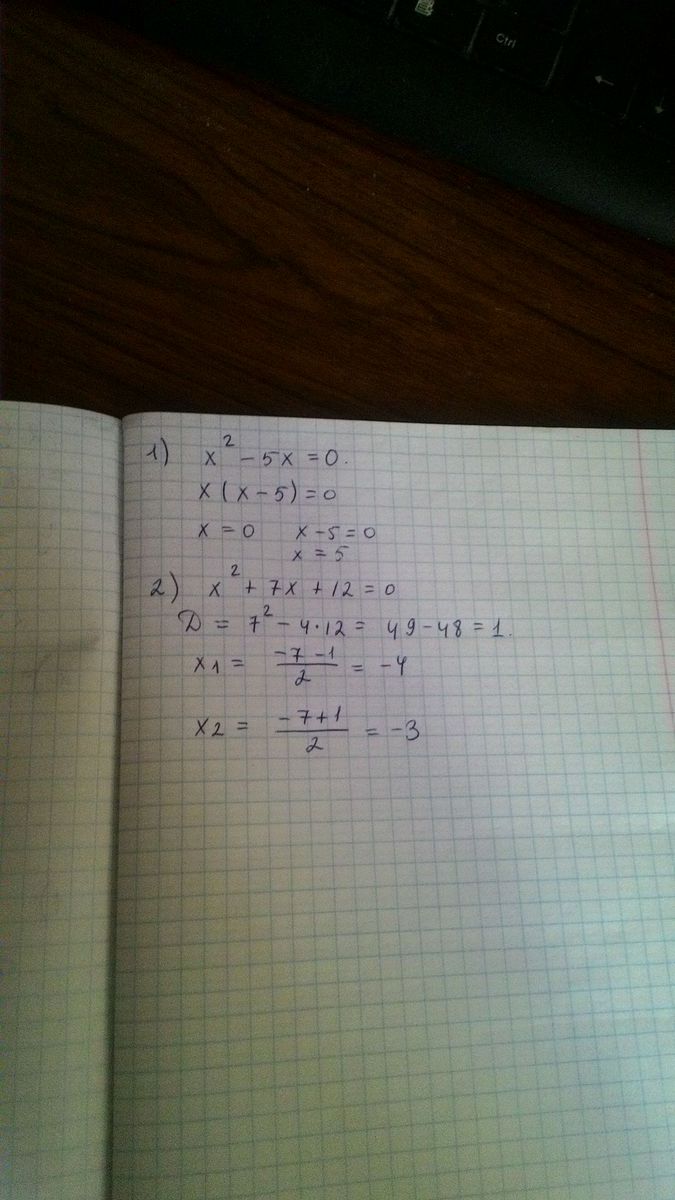 Ctrl
←
↓
1) x² - 5x = 0.
x(x - 5) = 0
x = 0 x - 5 = 0
x = 5
2) x² + 7x + 12 = 0
D = 7² - 4·12 = 49 - 48 = 1.
x1 = (-7 - 1)/2 = -4
x2 = (-7 + 1)/2 = -3